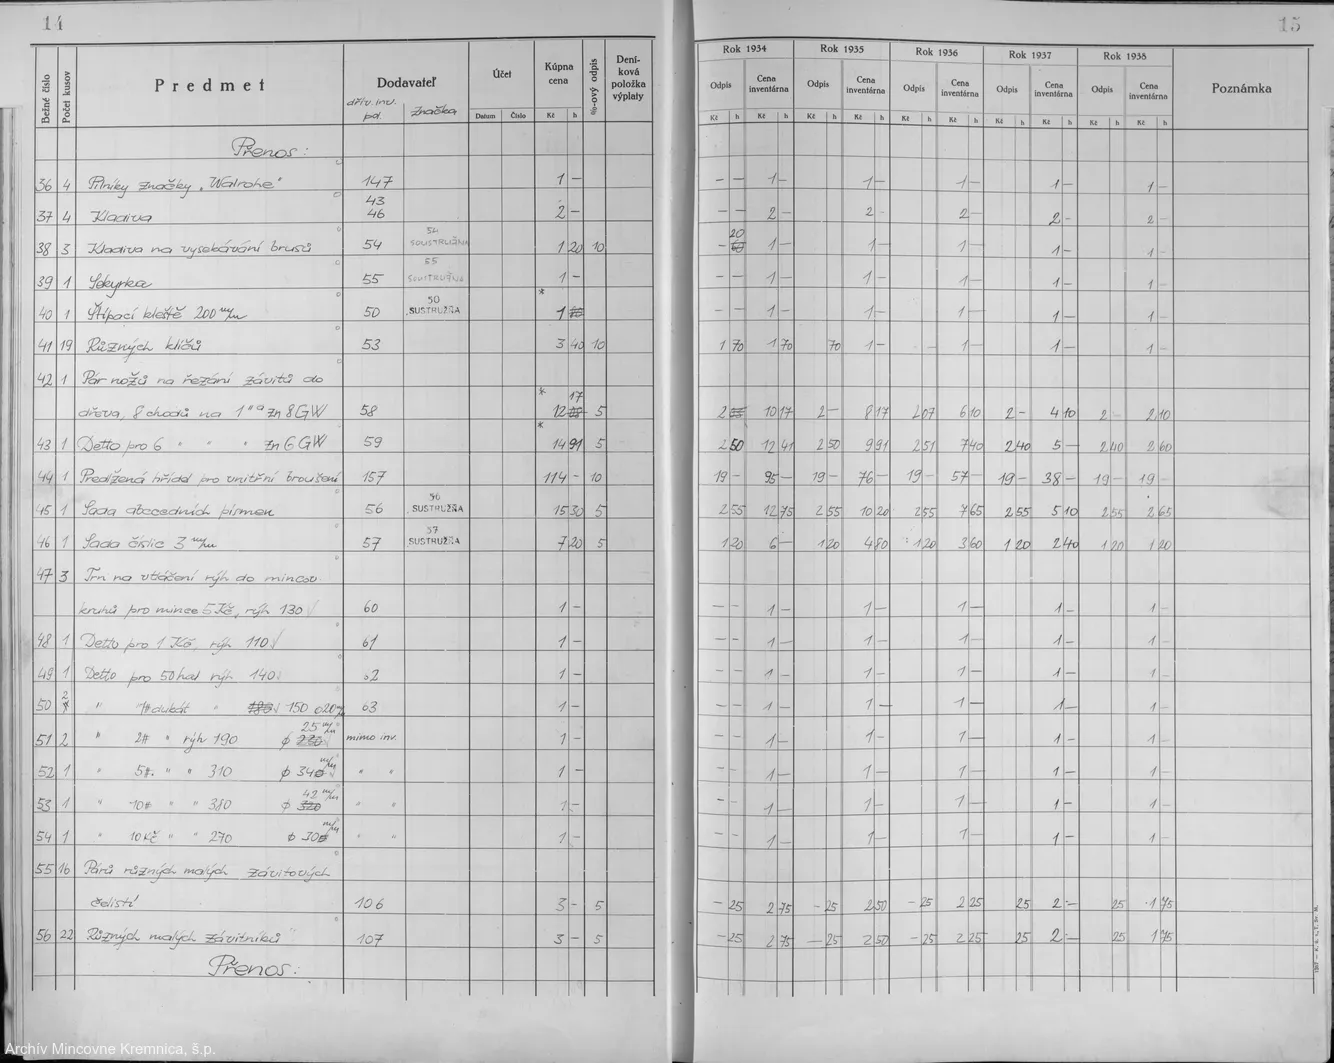 14
15
Bežné číslo | Počet kusov | Predmet | Dodavateľ | Účet | Kúpna cena | %-ový odpis | Deníková položka výplaty | Rok 1934 | Rok 1935 | Rok 1936 | Rok 1937 | Rok 1938 | Poznámka
dřív. inv. pol. | Značka | Datum | Číslo | Kč | h | Odpis | Cena inventárna | Odpis | Cena inventárna | Odpis | Cena inventárna | Odpis | Cena inventárna | Odpis | Cena inventárna
Kč | h | Kč | h | Kč | h | Kč | h | Kč | h | Kč | h | Kč | h | Kč | h | Kč | h | Kč | h
Přenos:
36 | 4 | Pilníky značky „Walrohe" | 147 | 1 – | – – | 1 – | 1 – | 1 – | 1 – | 1 –
37 | 4 | Kladiva | 43 46 | 2 – | – – | 2 – | 2 – | 2 – | 2 – | 2 –
38 | 3 | Kladiva na vysekávání brusů | 54 | 54 SOUSTRUŽNA | 1 20 | 10 | – 20 | 1 – | 1 – | 1 – | 1 – | 1 –
39 | 1 | Sekyrka | 55 | 55 SOUSTRUŽNA | 1 – | – – | 1 – | 1 – | 1 – | 1 – | 1 –
40 | 1 | Štípací kleště 200 m/m | 50 | 50 SUSTRUŽŇA | * 1 | – – | 1 – | 1 – | 1 – | 1 – | 1 –
41 | 19 | Různých klíčů | 53 | 3 40 | 10 | 1 70 | 1 70 | 70 | 1 – | – | 1 – | 1 – | 1 –
42 | 1 | Pár nožů na řezání závitů do
dřeva, 8 chodů na 1" a zn 8 GW | 58 | * 12 17 | 5 | 2 | 10 17 | 2 – | 8 17 | 2 07 | 6 10 | 2 – | 4 10 | 2 – | 2 10
43 | 1 | Detto pro 6 " " " zn 6 GW | 59 | * 14 91 | 5 | 2 50 | 12 41 | 2 50 | 9 91 | 2 51 | 7 40 | 2 40 | 5 – | 2 40 | 2 60
44 | 1 | Predlžená hřídel pro vnitřní broušení | 157 | 114 – | 10 | 19 – | 95 – | 19 – | 76 – | 19 – | 57 – | 19 – | 38 – | 19 – | 19 –
45 | 1 | Sada abecedních písmen | 56 | 56 SUSTRUŽŇA | 15 30 | 5 | 2 55 | 12 75 | 2 55 | 10 20 | 2 55 | 7 65 | 2 55 | 5 10 | 2 55 | 2 65
46 | 1 | Sada číslic 3 m/m | 57 | 57 SUSTRUŽŇA | 7 20 | 5 | 1 20 | 6 – | 1 20 | 4 80 | 1 20 | 3 60 | 1 20 | 2 40 | 1 20 | 1 20
47 | 3 | Trn na vtláčení rýh do mincov.
kruhů pro mince 5 Kč, rýh 130 | 60 | 1 – | – – | 1 – | 1 – | 1 – | 1 – | 1 –
48 | 1 | Detto pro 1 Kč, rýh 110 | 61 | 1 – | – – | 1 – | 1 – | 1 – | 1 – | 1 –
49 | 1 | Detto pro 50 hal rýh 140 | 62 | 1 – | – – | 1 – | 1 – | 1 – | 1 – | 1 –
50 | 2 | " 1# dukát " 150 ∅20 m/m | 63 | 1 – | – – | 1 – | 1 – | 1 – | 1 – | 1 –
51 | 2 | " 2# " rýh 190 ∅ 25 m/m | mimo inv. | 1 – | – – | 1 – | 1 – | 1 – | 1 – | 1 –
52 | 1 | " 5#. " " 310 ∅ 34 m/m | " " | 1 – | – – | 1 – | 1 – | 1 – | 1 – | 1 –
53 | 1 | " 10# " " 380 ∅ 42 m/m | " " | 1 – | – – | 1 – | 1 – | 1 – | 1 – | 1 –
54 | 1 | " 10 Kč " " 270 ∅ 30 m/m | " " | 1 – | – – | 1 – | 1 – | 1 – | 1 – | 1 –
55 | 16 | Párů různých malých závitových
čelistí | 106 | 3 – | 5 | – 25 | 2 75 | – 25 | 2 50 | – 25 | 2 25 | 25 | 2 – | 25 | 1 75
56 | 22 | Různých malých závitníků | 107 | 3 – | 5 | – 25 | 2 75 | – 25 | 2 50 | – 25 | 2 25 | 25 | 2 – | 25 | 1 75
Přenos:
Archív Mincovne Kremnica, š.p.